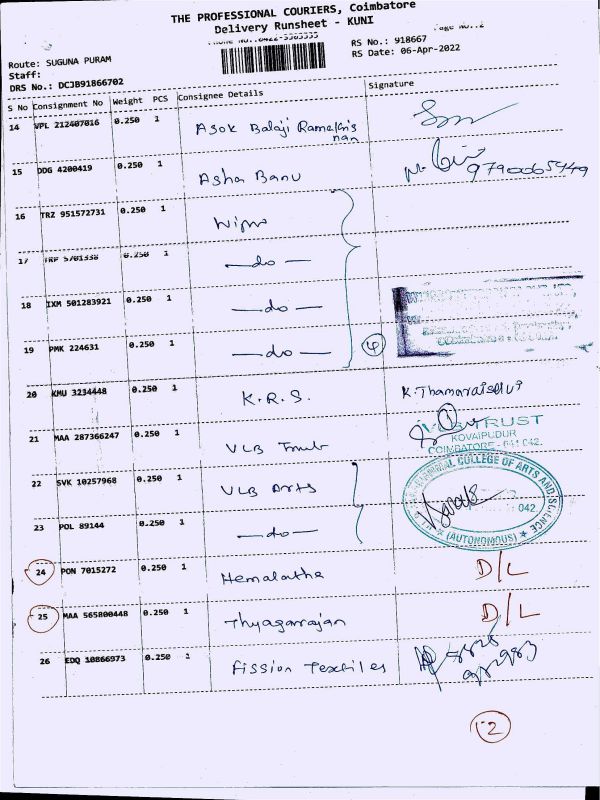 THE PROFESSIONAL COURIERS, Coimbatore
Delivery Runsheet - KUNI
Page No.:2
Route: SUGUNA PURAM
RS No.: 918667
Staff:
RS Date: 06-Apr-2022
DRS No.: DCJB91866702
S No Consignment No Weight PCS Consignee Details Signature
14 VPL 212407016 0.250 1 Asok Balaji Ramekris
nan
15 DDG 4200419 0.250 1 Asha Banu 9790065449
16 TRZ 951572731 0.250 1 Wipro
17 0.250 1 -do-
18 IXM 501283921 0.250 1 -do-
19 PMK 224631 0.250 1 -do- 4
20 KMU 3234448 0.250 1 K.R.S. K.Thamaraiselvi
21 MAA 287366247 0.250 1 VLB Trust
TRUST
KOVAIPUDUR
COIMBATORE - 641 042.
22 SVK 10257968 0.250 1 VLB Arts
COLLEGE OF ARTS AND SCIENCE
042
(AUTONOMOUS)
23 POL 89144 0.250 1 -do-
24 PON 7015272 0.250 1 Hemalatha D/L
25 MAA 565800448 0.250 1 Thyagarajan D/L
26 EDQ 10866973 0.250 1 Fission Textiles
2